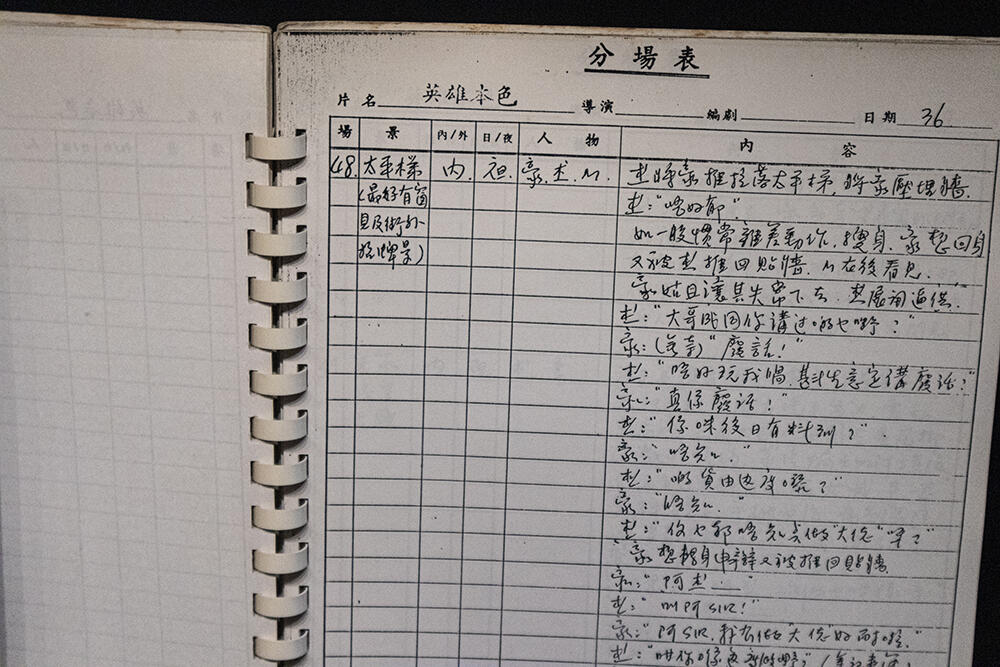 分場表
片名 英雄本色 導演 編劇 日期 36
場 景 內/外 日/夜 人物 內容
48. 太平梯 內. 豪. 杰. M. 杰將豪推拉落太平梯, 將豪壓埋牆.
(最好有窗 杰: "唔好郁".
見及街外 如一般慣常離差動作, 搜身. 豪想回身
招牌景) 又被杰推回貼牆. M在後看見.
豪姑且讓其失常下去.
杰: "大哥成同你講過啲乜嘢?"
豪: "廢話!"
杰: "唔好玩我喎. 講廢話?"
豪: "真係廢話!"
杰: "係咪後日有料到?"
豪: "唔知."
杰: "啲貨由邊度嚟?"
豪: "唔知."
杰: "你乜都唔知點做 "大佬" 㗎?"
豪想轉身申辯又被推回貼牆
豪: "阿杰..."
杰: "叫阿SIR!"
豪: "阿SIR, 我冇做 "大佬" 好耐啦."
杰: "咁你喺